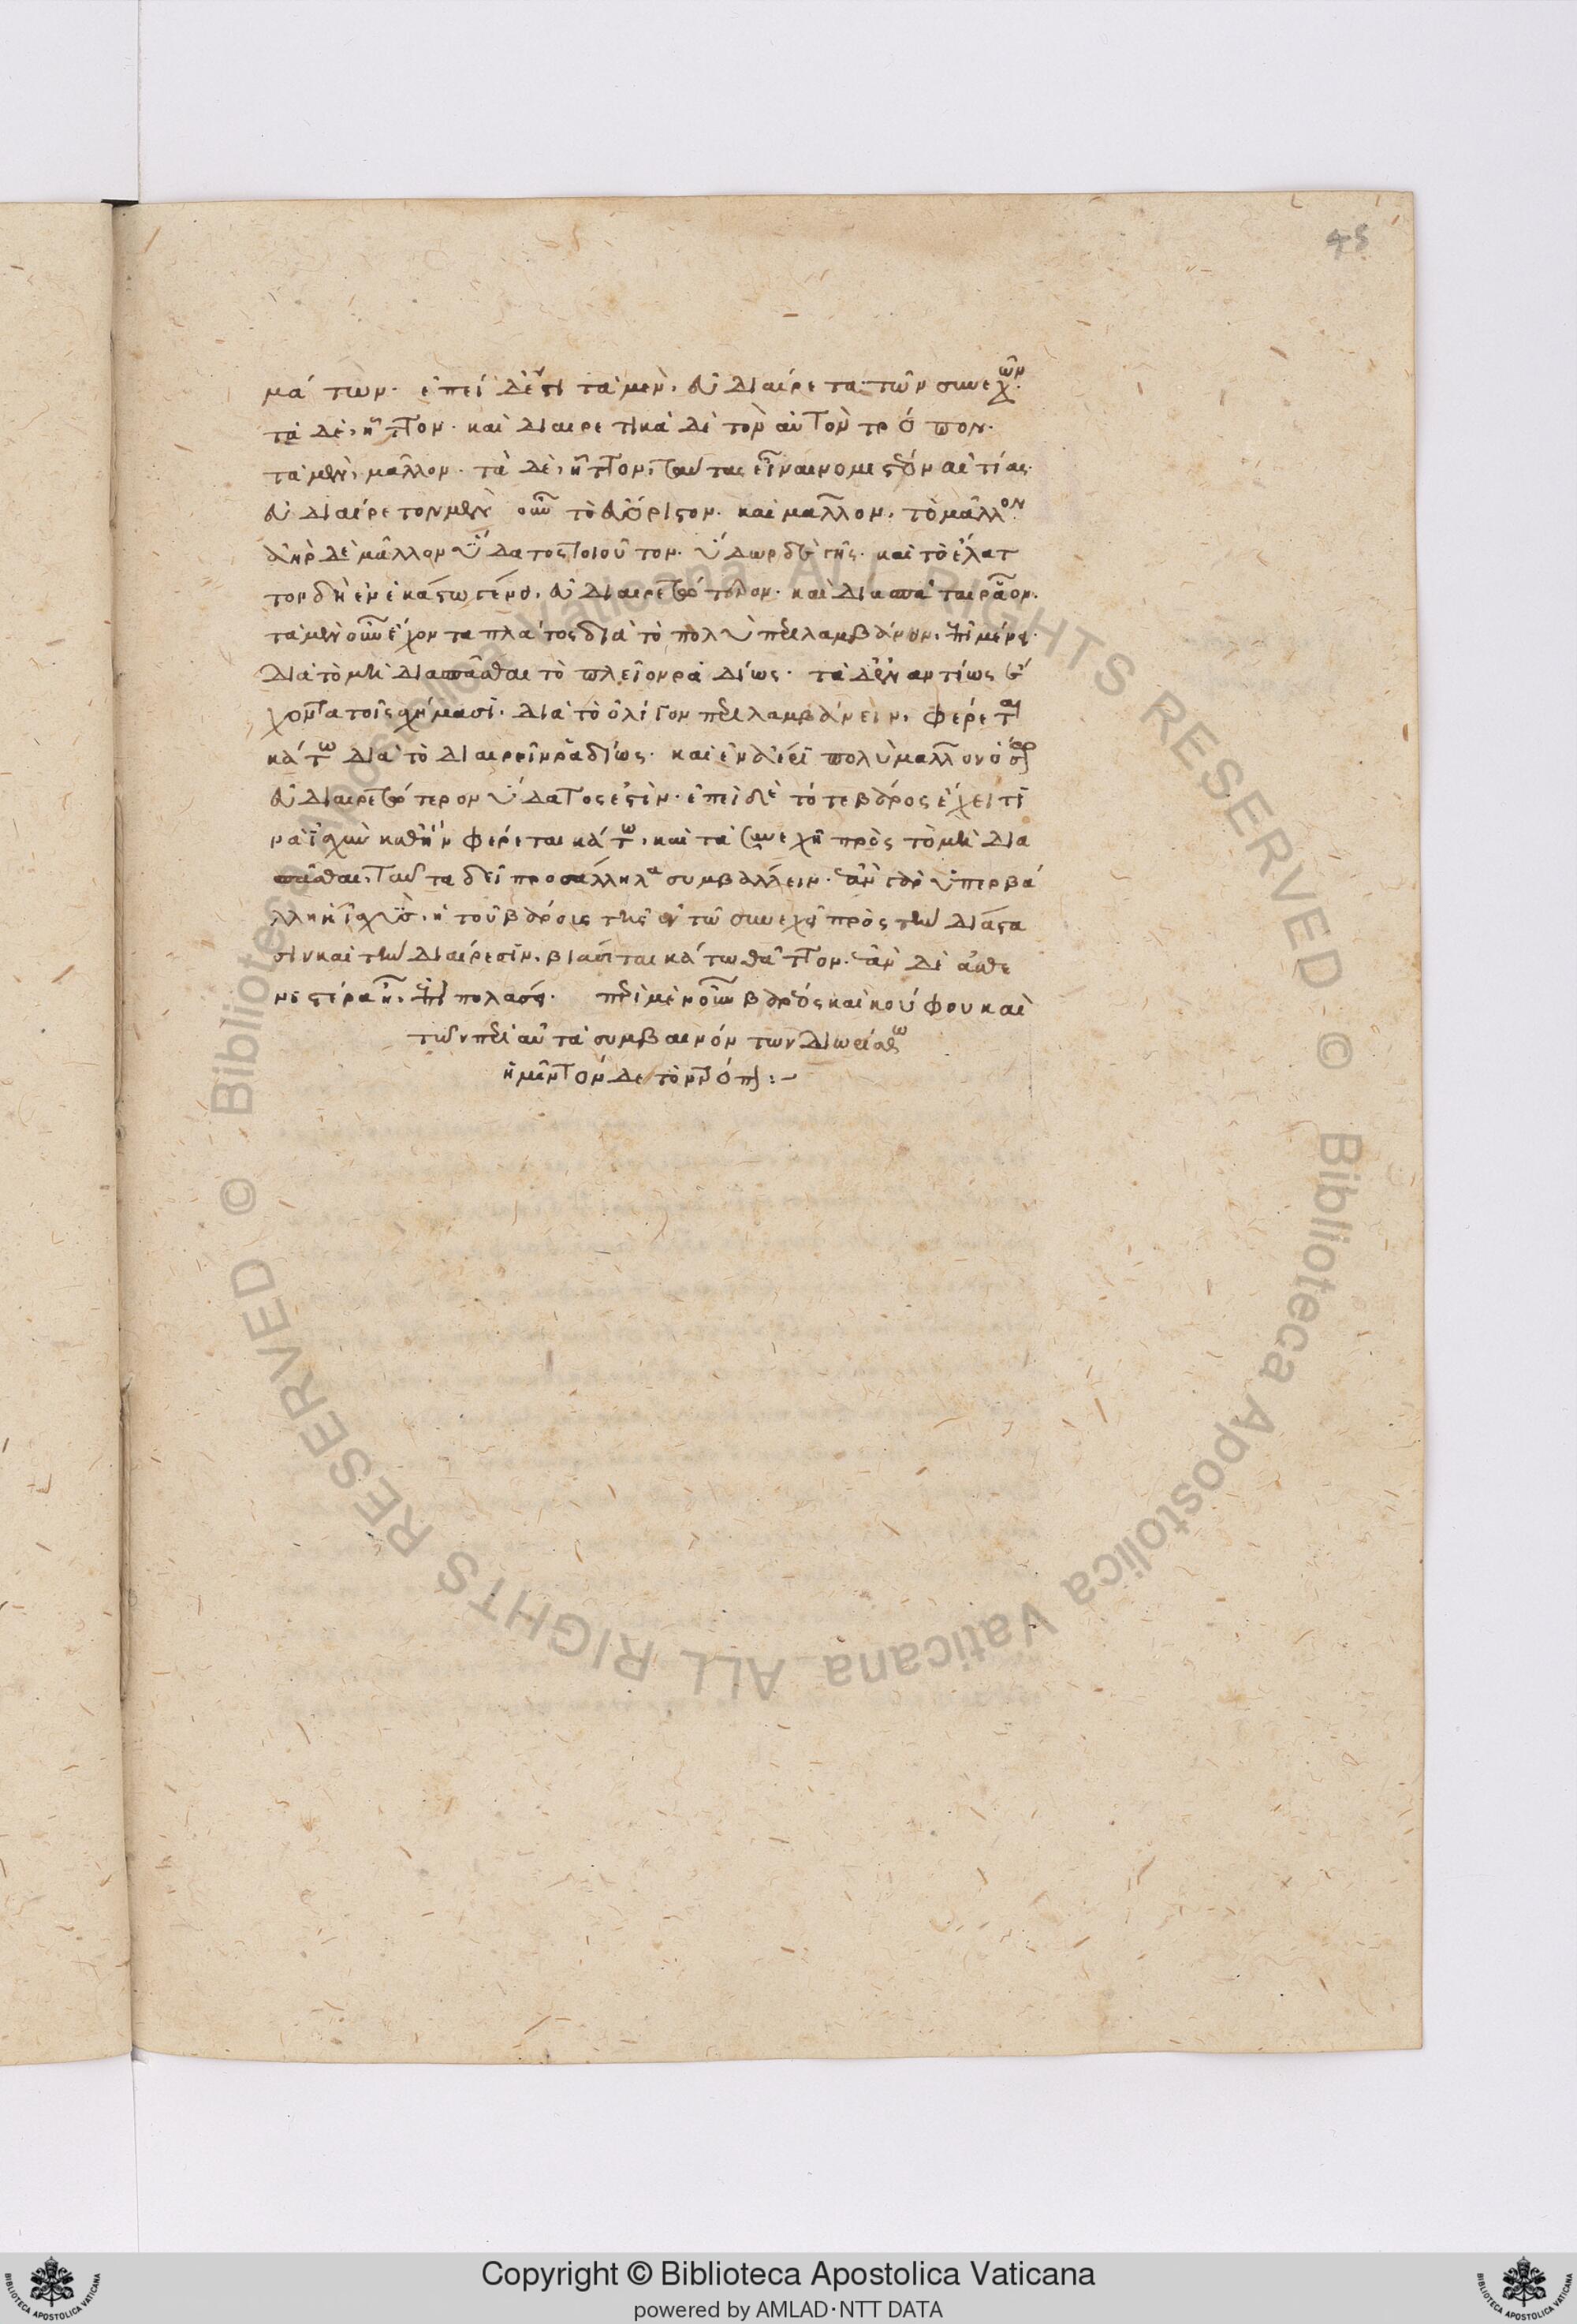 45
μάτων· ἐπεὶ δἐστι τὰ μὲν, εὐδιαίρετα τῶν συνεχῶν·
τὰ δὲ, ἧττον· καὶ διαιρετικὰ δὲ τὸν αὐτὸν τρόπον·
τὰ μὲν, μᾶλλον· τὰ δὲ, ἧττον, ταύτας εἶναι νομιστέον αἰτίας·
εὐδιαίρετον μὲν οὖν τὸ εὐόριστον· καὶ μᾶλλον, τὸ μᾶλλον·
ἀὴρ δὲ μᾶλλον ὕδατος τοιοῦτον· ὕδωρ δὲ γῆς· καὶ τὸ ἔλατ
τον δὴ ἐν ἑκάστω γένει, εὐδιαιρετώτερον· καὶ διασπᾶται ρᾶον·
τὰ μὲν οὖν ἔχοντα πλάτος διὰ τὸ πολὺ περιλαμβάνειν, ἐπιμένει·
διὰ τὸ μὴ διασπᾶσθαι τὸ πλεῖον ραδίως· τὰ δἐναντίως ἔ
χοντα τοῖς σχήμασι· διὰ τὸ ὀλίγον περιλαμβάνειν, φέρεται
κάτω διὰ τὸ διαιρεῖν ραδίως· καὶ ἐν ἀέρι πολὺ μᾶλλον ὅσω
εὐδιαιρετώτερον ὕδατος ἐστὶν· ἐπεὶ δὲ τό τε βάρος ἔχει τι
να ἰσχὺν καθ' ἣν φέρεται κάτω, καὶ τὰ συνεχῆ πρὸς τὸ μὴ δια
σπᾶσθαι, ταῦτα δεῖ προσάλληλα συμβάλλειν· ἐὰν γὰρ ὑπερβά
λλη ἡ ἰσχὺς, ἡ τοῦ βάρους τῆς ἐν τῶ συνεχεῖ πρὸς τὴν διάστα
σιν καὶ τὴν διαίρεσιν, βιάσεται κάτω θᾶττον· ἐὰν δὲ ἀσθε
νεστέρα ἦ, ἐπιπολάσει· περὶ μὲν οὖν βαρέος καὶ κούφου καὶ
τῶν περὶ αὐτὰ συμβαινόντων διωρίσθω
ἡμῖν τόνδε τὸν τρόπον :~
© Biblioteca Apostolica Vaticana ALL RIGHTS RESERVED © Biblioteca Apostolica Vaticana ALL RIGHTS RESERVED
Copyright © Biblioteca Apostolica Vaticana
powered by AMLAD·NTT DATA
BIBLIOTECA APOSTOLICA VATICANA
BIBLIOTECA APOSTOLICA VATICANA